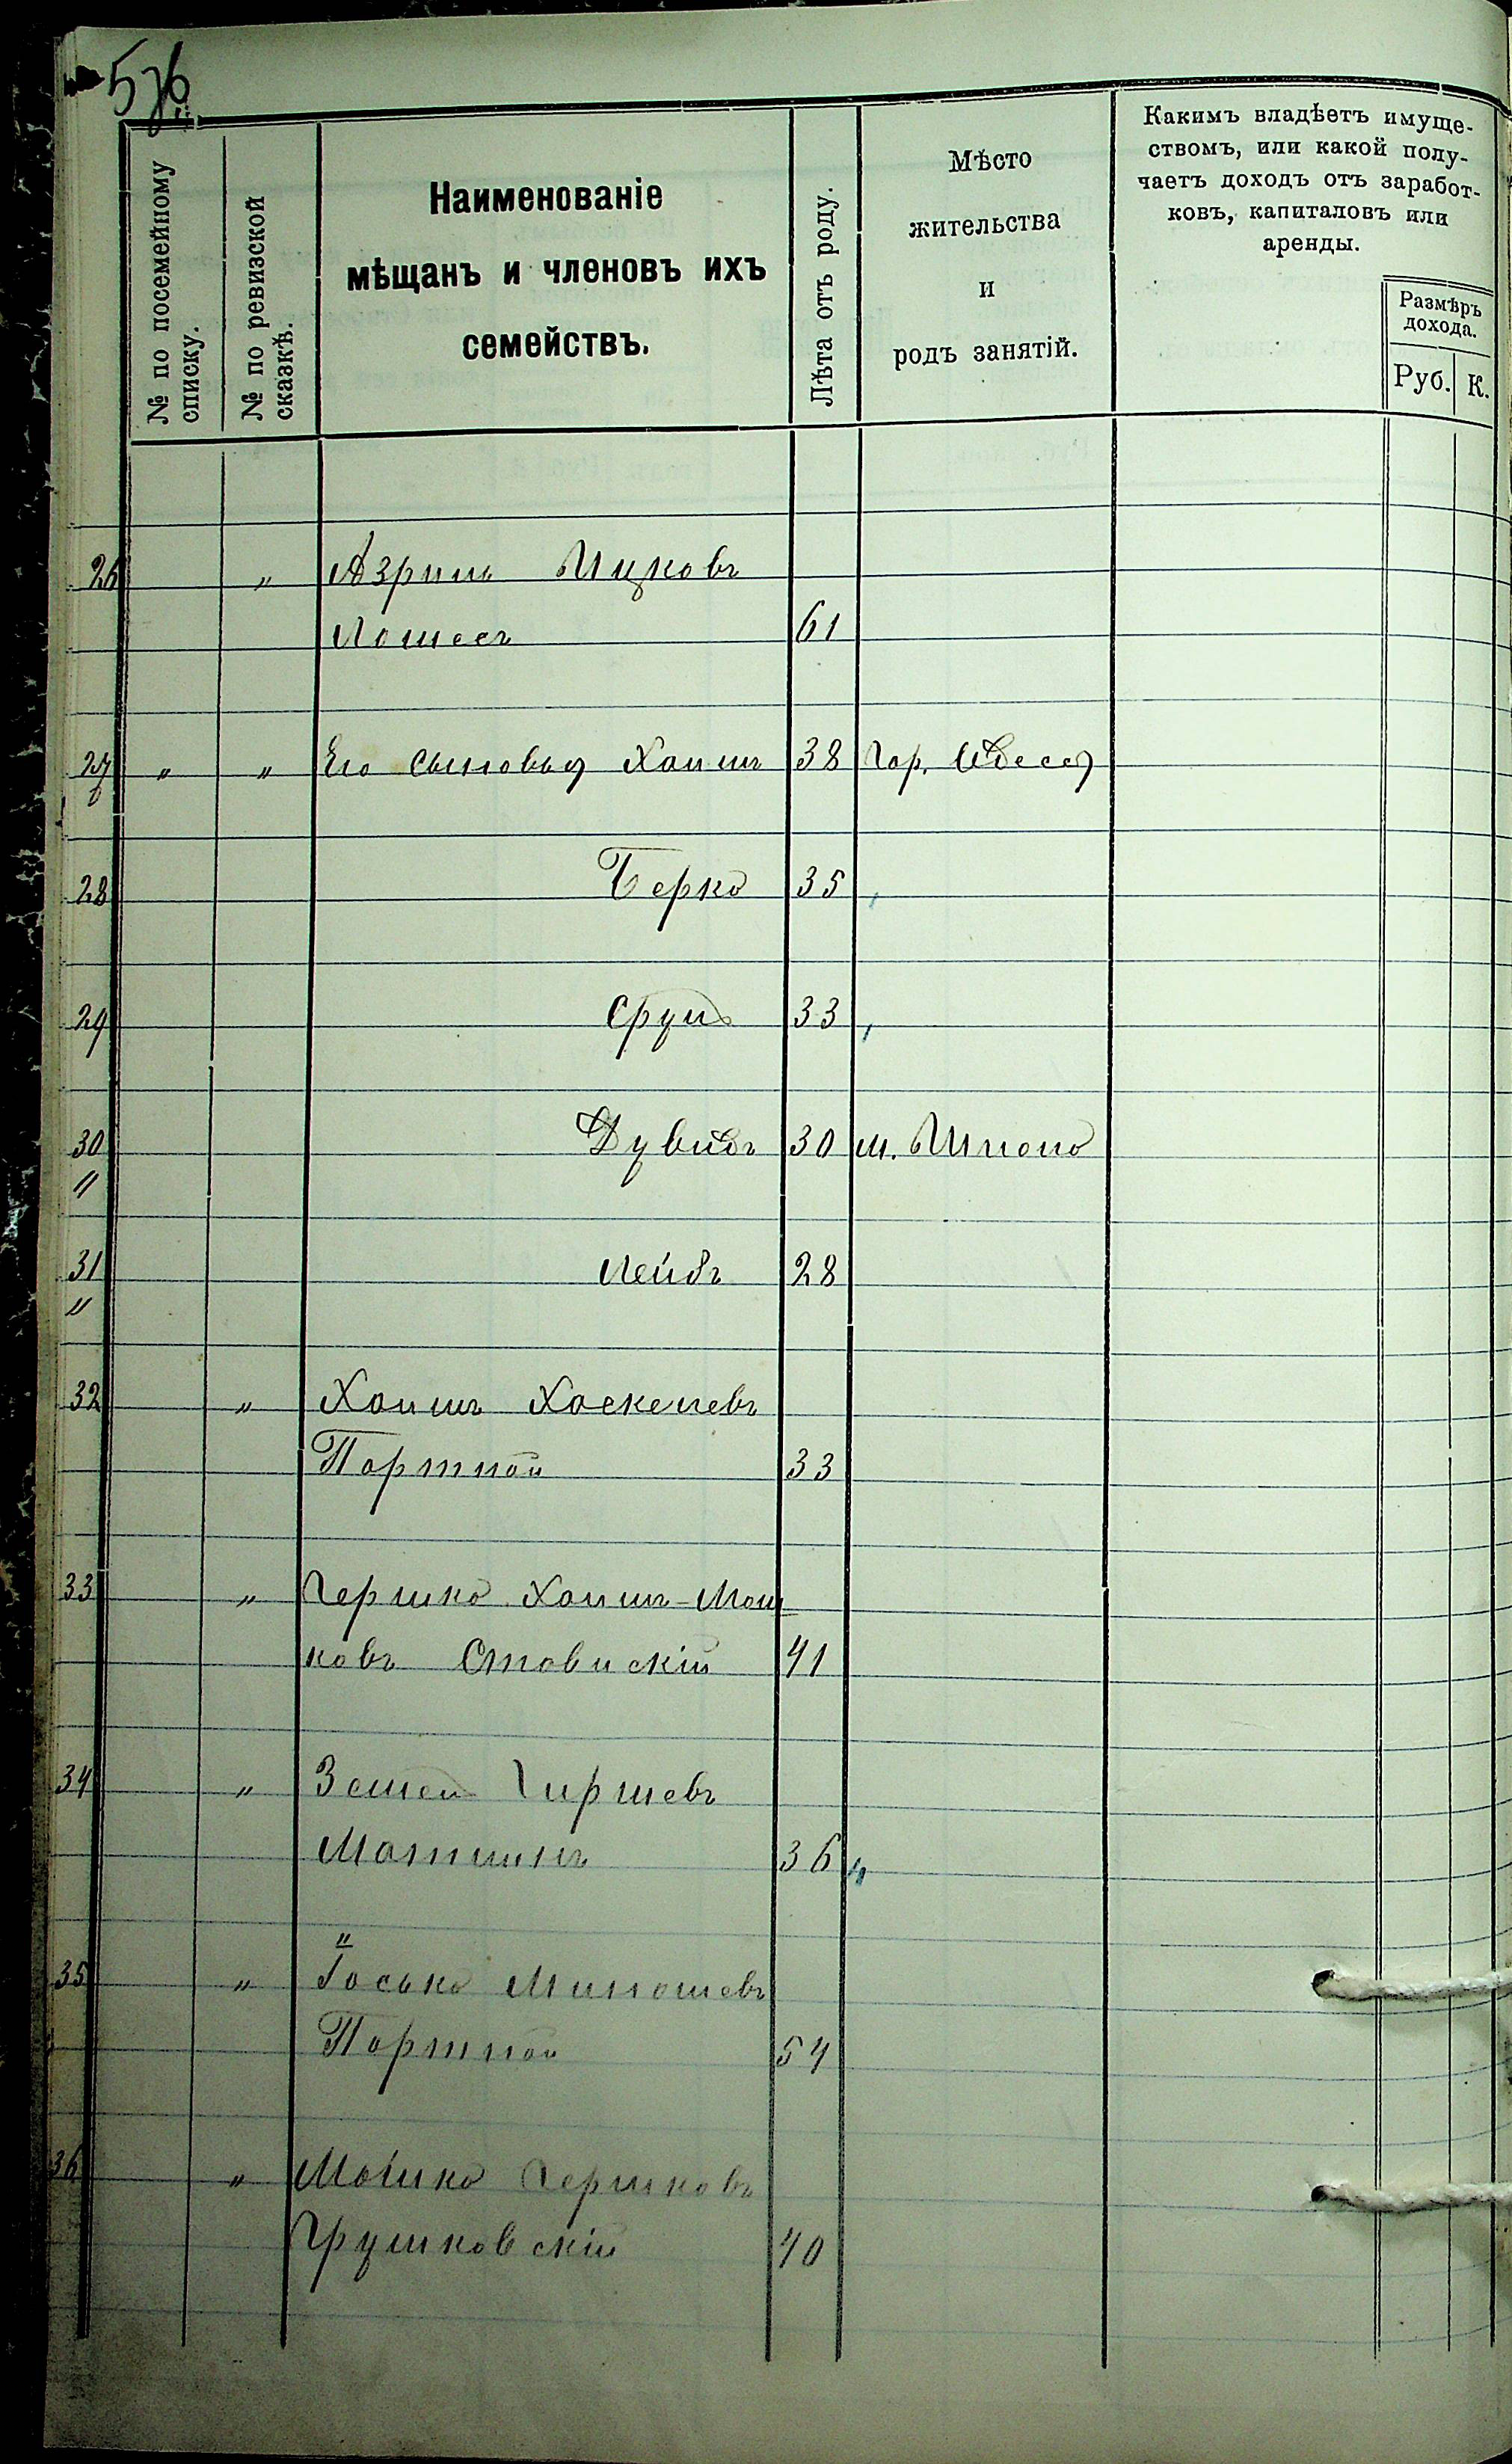 576
№ по посемейному списку.
№ по ревизской сказкѣ.
Наименованіе
мѣщанъ и членовъ ихъ
семействъ.
Лѣта отъ роду.
Мѣсто
жительства
и
родъ занятій.
Какимъ владѣетъ имуще-
ствомъ, или какой полу-
чаетъ доходъ отъ заработ-
ковъ, капиталовъ или
аренды.
Размѣръ
дохода.
Руб. К.
26 " Азриль Ицковъ
61
27 " " Его сыновья Хаимъ 38 Гор. Одесса
28 Берко 35
29 Сруль 33
30 Дувидъ 30 м. Шпола
"
31 Лейбъ 28
"
32 " Хаимъ Хаскелевъ
Портной 33
33 " Гершко Хаимъ-Мош
ковъ Ставискій 41
34 " Гиршевъ
36 "
35 " Іосько
Портной 54
36 " Мошко Гершковъ
Грушковскій 40